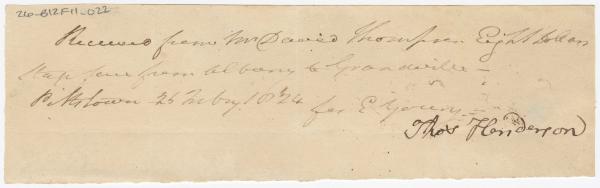 26-B12F11-022
Received from Mr David Thompson Eight Dollars
Stage fare from Albany to Grandville —
Pittstown 26 May 1824 for E
Thos Henderson